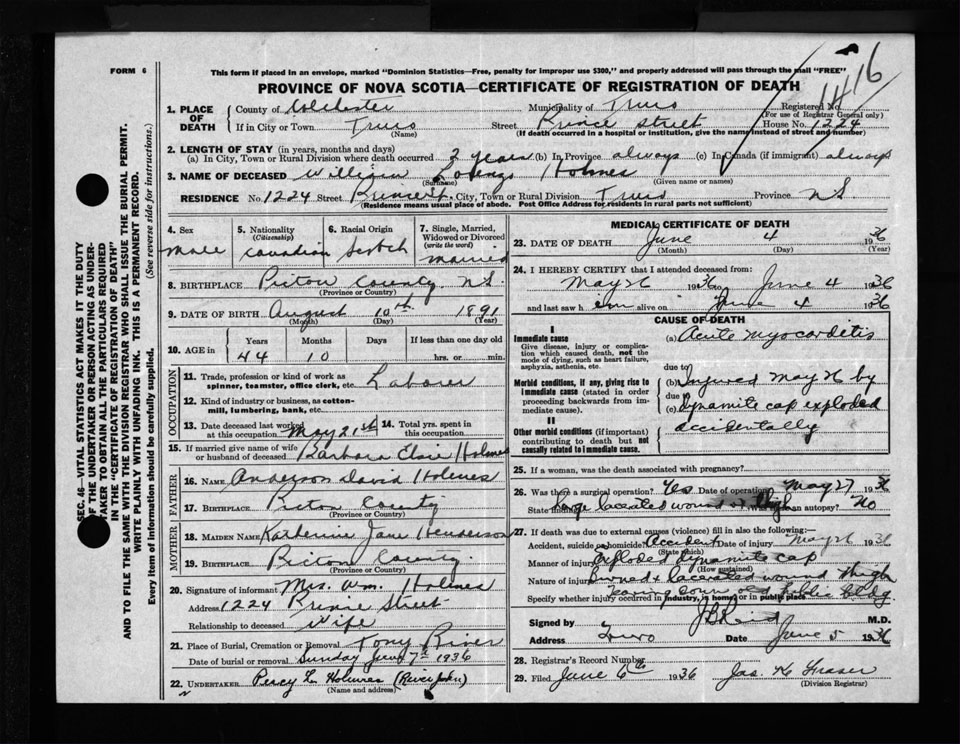 FORM 6
This form if placed in an envelope, marked "Dominion Statistics—Free, penalty for improper use $300," and properly addressed will pass through the mail "FREE"
1416
PROVINCE OF NOVA SCOTIA—CERTIFICATE OF REGISTRATION OF DEATH
1. PLACE OF DEATH County of Colchester Municipality of Truro Registered No.
(For use of Registrar General only)
If in City or Town Truro Street Prince Street House No. 1224
(Name) (If death occurred in a hospital or institution, give the name instead of street and number)
2. LENGTH OF STAY (in years, months and days)
(a) In City, Town or Rural Division where death occurred 2 years (b) In Province always (c) In Canada (if immigrant) always
3. NAME OF DECEASED William Lorenzo Holmes
(Surname) (Given name or names)
RESIDENCE No. 1224 Street Prince St. City, Town or Rural Division Truro Province N S
(Residence means usual place of abode. Post Office Address for residents in rural parts not sufficient)
4. Sex 5. Nationality (Citizenship) 6. Racial Origin 7. Single, Married, Widowed or Divorced (write the word)
male Canadian Scotch married
8. BIRTHPLACE Pictou County N.S.
(Province or Country)
9. DATE OF BIRTH August 10th 1891
(Month) (Day) (Year)
10. AGE in Years Months Days If less than one day old
44 10 hrs. or min.
OCCUPATION
11. Trade, profession or kind of work as spinner, teamster, office clerk, etc. Labourer
12. Kind of industry or business, as cotton-mill, lumbering, bank, etc.
13. Date deceased last worked at this occupation May 21st 14. Total yrs. spent in this occupation
15. If married give name of wife or husband of deceased Barbara Elsie Holmes
FATHER
16. NAME Anderson David Holmes
17. BIRTHPLACE Pictou County
(Province or Country)
MOTHER
18. MAIDEN NAME Katherine Jane Henderson
19. BIRTHPLACE Pictou County
(Province or Country)
20. Signature of informant Mrs. Wm. Holmes
Address 1224 Prince Street
Relationship to deceased Wife
21. Place of Burial, Cremation or Removal Tony River
Date of burial or removal Sunday June 7th 1936
22. UNDERTAKER Percy L. Holmes
(Name and address)
MEDICAL CERTIFICATE OF DEATH
23. DATE OF DEATH June 4 1936
(Month) (Day) (Year)
24. I HEREBY CERTIFY that I attended deceased from:
May 26 1936 to June 4 1936
and last saw h im alive on June 4 1936
CAUSE OF DEATH
I
Immediate cause
Give disease, injury or complication which caused death, not the mode of dying, such as heart failure, asphyxia, asthenia, etc.
(a) Acute myocarditis
due to
Morbid conditions, if any, giving rise to immediate cause (stated in order proceeding backwards from immediate cause).
(b) Injured May 26 by
due to
(c) dynamite cap exploded
accidentally
II
Other morbid conditions (if important) contributing to death but not causally related to immediate cause.
25. If a woman, was the death associated with pregnancy?
26. Was there a surgical operation? Yes Date of operation May 27 1936
State findings Large lacerated wound Thigh Was there an autopsy? No
27. If death was due to external causes (violence) fill in also the following:—
Accident, suicide or homicide? Accident Date of injury May 26 1936
(State which)
Manner of injury Exploded dynamite cap
(How sustained)
Nature of injury Burned & lacerated wound thigh
tearing down public bldg.
Specify whether injury occurred in industry, in home, or in public place
Signed by M.D.
Address Truro Date June 5 1936
28. Registrar's Record Number
29. Filed June 6th 1936 Jas. K. Fraser
(Division Registrar)
SEC. 46—VITAL STATISTICS ACT MAKES IT THE DUTY
OF THE UNDERTAKER OR PERSON ACTING AS UNDER-
TAKER TO OBTAIN ALL THE PARTICULARS REQUIRED
IN THE "CERTIFICATE OF REGISTRATION OF DEATH"
AND TO FILE THE SAME WITH THE DIVISION REGISTRAR WHO SHALL ISSUE THE BURIAL PERMIT.
WRITE PLAINLY WITH UNFADING INK. THIS IS A PERMANENT RECORD.
Every item of information should be carefully supplied. (See reverse side for instructions.)